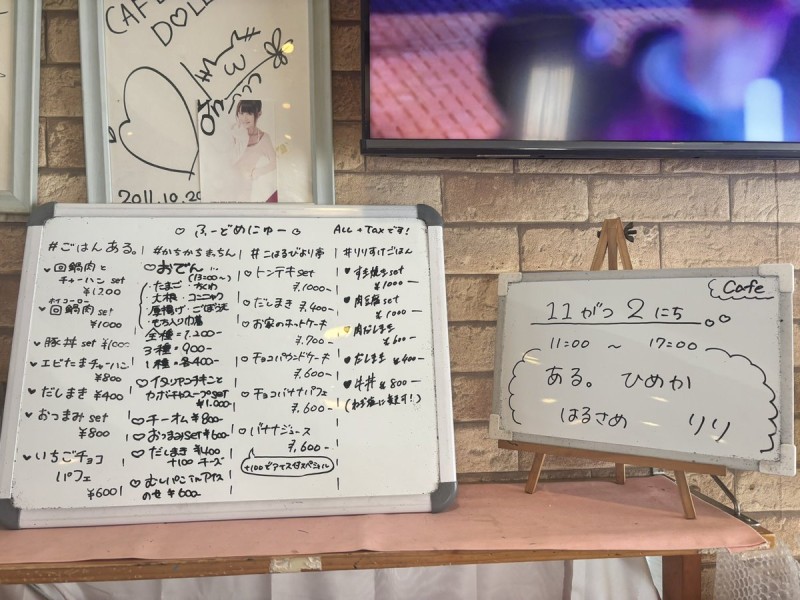 CAFE
DOLL
2011.10.20
♡ ふーどめにゅー ♡
ALL +Taxです!
#ごはんある。
♥ 回鍋肉と
チャーハン set
¥1200
ホイコーロー
♥ 回鍋肉 set
¥1000
♥ 豚丼 set ¥1000
♥ エビたまチャーハン
¥800
♥ だしまき ¥400
♥ おつまみ set
¥800
♥ いちごチョコ
パフェ
¥600
#かちかちまっちん
♡ おでん…
(13:00〜)
・たまご ・ちくわ
・大根 ・コニャク
・厚揚げ ・ごぼう天
・もち入り巾着
全種=1,200-
3種=900-
1種=各400-
♡ イタリアンチキンと
カボチャスープのset
¥1,000-
♡ チーオム ¥800-
♡ おつまみset ¥600-
♡ だしまき ¥400
+100 チーズ
♡ むしパンwithアイス
のせ ¥600-
#こはるびより亭
♡ トンテキset
¥,1000-
♡ だしまき ¥,400-
♡ お家のホットケーキ
¥,700-
♡ チョコパウンドケーキ
¥,600-
♡ チョコバナナパフェ
¥,600-
♡ バナナジュース
¥,600-
+100でアイス付スペシャル
#りりすけごはん
♥ すき焼きset
¥1000-
♥ 肉豆腐set
¥1000-
♥ 肉だしまき
¥600-
♥ だしまき ¥400-
♥ 牛丼 ¥800-
Cafe
11がつ2にち
11:00 〜 17:00
ある。 ひめか
はるさめ りり